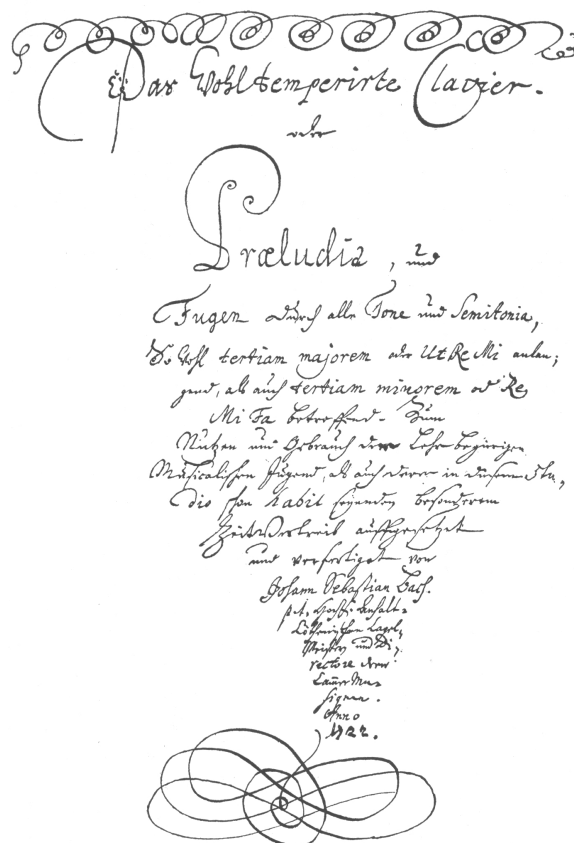 Das Wohltemperirte Clavier.
oder
Præludia, und
Fugen durch alle Tone und Semitonia,
So wohl tertiam majorem oder Ut Re Mi anlan,
gend, als auch tertiam minorem od Re
Mi Fa betreffend. Zum
Nutzen und Gebrauch der Lehr begierigen
Musicalischen Jugend, als auch derer in diesem Stu,
dio schon habil seyenden besonderem
ZeitVertreib auffgesetzet
und verfertiget von
Johann Sebastian Bach.
p. t. Hochf. Anhalt-
Cöthenischen Capel-
Meistern und Di-
rectore derer
Cam̄er Mu-
siquen.
Anno
1722.